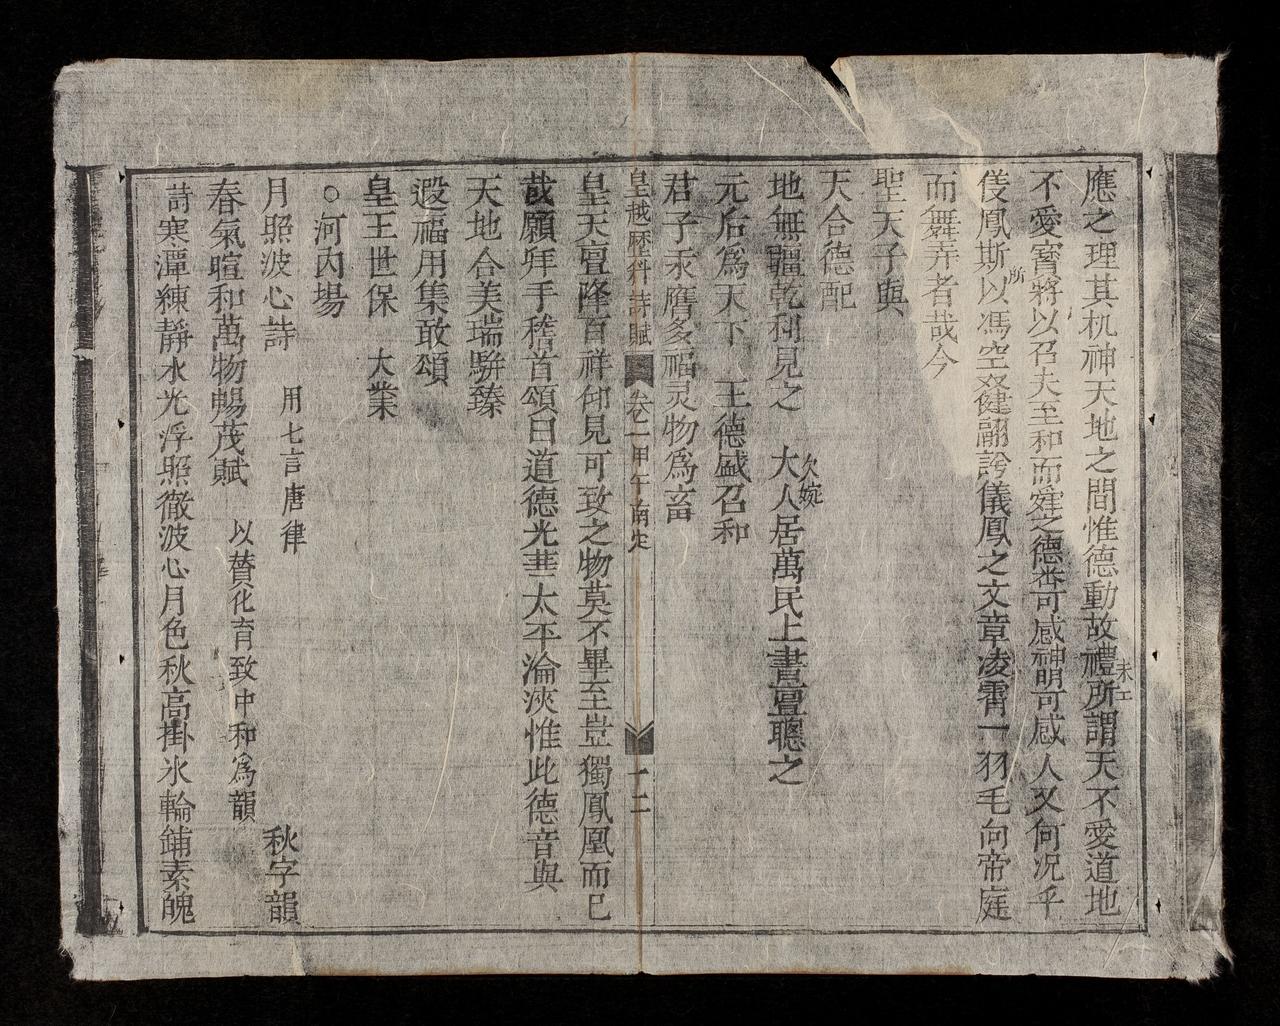 應之理其机神天地之間惟德動故禮所謂天不愛道地
未工
不愛寳將以召夫至和而窪之德杳可感神明可感人又何况乎
所
伎鳳斯以馮空發健翮誇儀鳳之文章凌霄一羽毛向帝庭
而舞弄者哉今
聖天子與
天合德配
地無疆乾利見之 大人居萬民上晝亶聰之
欠婉
元后爲天下 王德盛召和
君子汞膺多福灵物爲畜
皇越歷科詩賦 卷二 甲午南定 十二
皇天亶隆百祥仰見可致之物莫不畢至豈獨鳳凰而已
哉願拜手稽首頌曰道德光華太平淪浹惟此德音與
天地合美瑞駢臻
遐福用集敢頌
皇王世保 大業
○河内場
月照波心詩 用七言唐律 秋字韻
春氣暄和萬物暢茂賦 以賛化育致中和爲韻
詩寒潭練靜水光浮照徹波心月色秋高掛氷輪鋪素魄